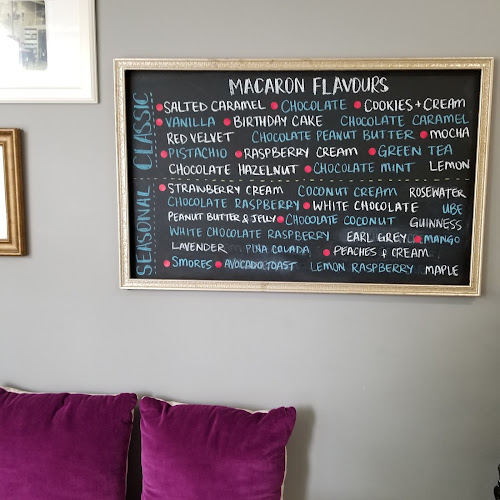 MACARON FLAVOURS
CLASSIC
SALTED CARAMEL CHOCOLATE COOKIES + CREAM
VANILLA BIRTHDAY CAKE CHOCOLATE CARAMEL
RED VELVET CHOCOLATE PEANUT BUTTER MOCHA
PISTACHIO RASPBERRY CREAM GREEN TEA
CHOCOLATE HAZELNUT CHOCOLATE MINT LEMON
SEASONAL
STRAWBERRY CREAM COCONUT CREAM ROSEWATER
CHOCOLATE RASPBERRY WHITE CHOCOLATE UBE
PEANUT BUTTER & JELLY CHOCOLATE COCONUT GUINNESS
WHITE CHOCOLATE RASPBERRY EARL GREY MANGO
LAVENDER PINA COLADA PEACHES & CREAM
SMORES AVOCADO TOAST LEMON RASPBERRY MAPLE